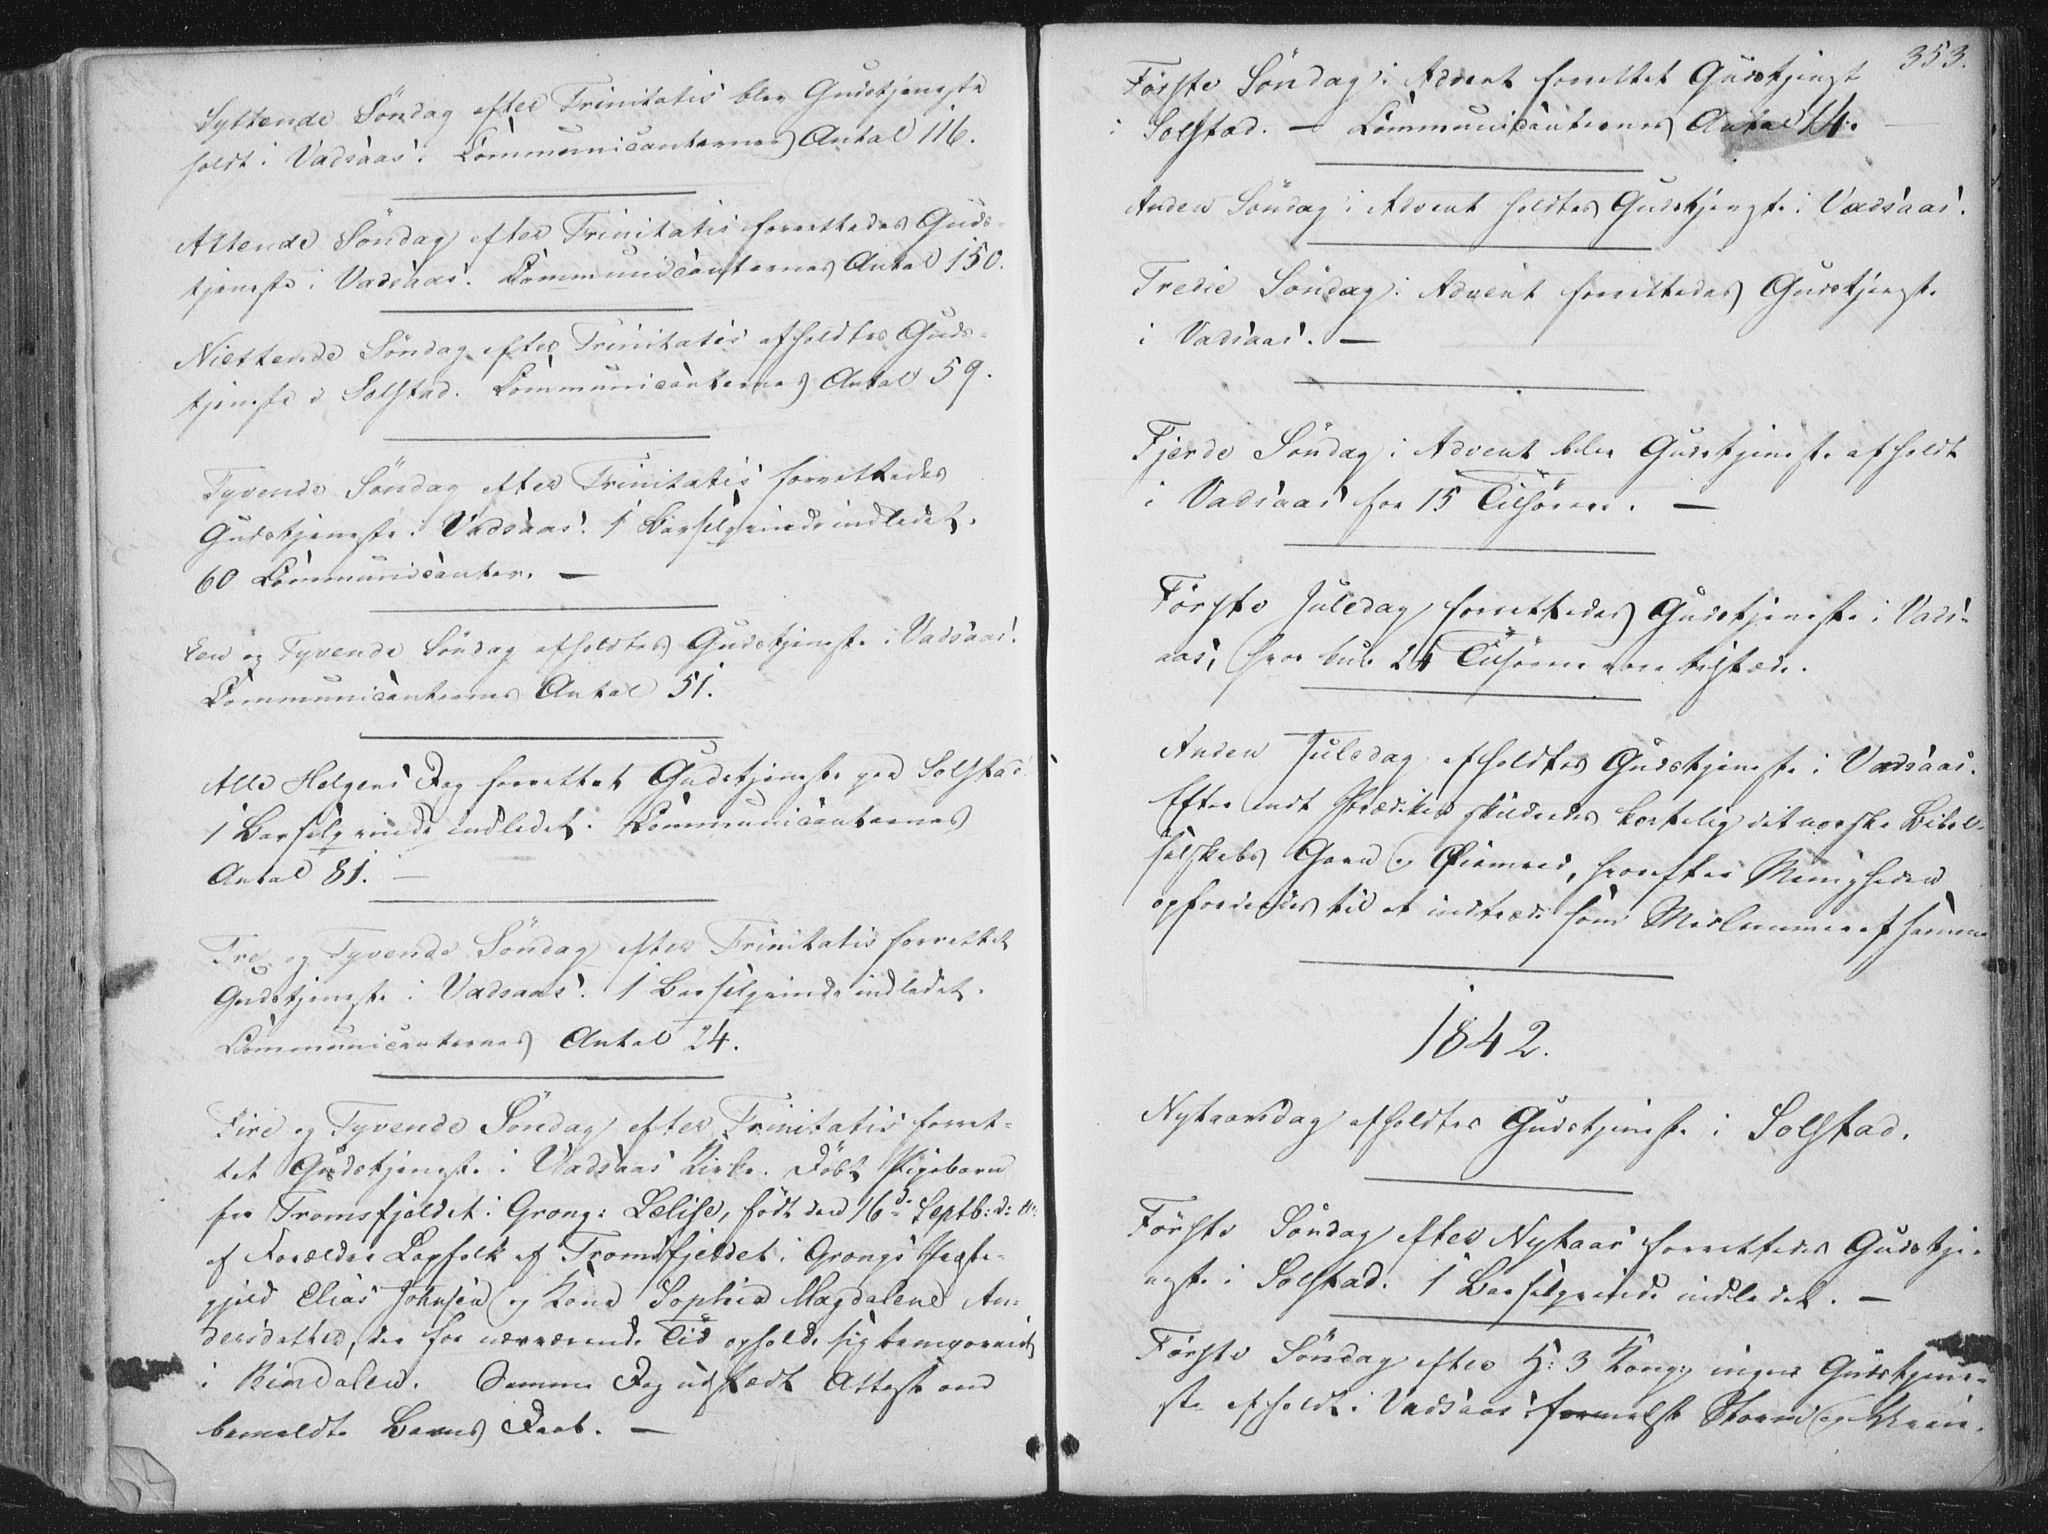 Syttende Söndag efter Trinitatis blev Gudstjeneste
holdt i Vadsaas. Communicanternes Antal 116.
Attende Söndag efter Trinitatis forrettedes Guds-
tjeneste i Vadsaas. Communicanternes Antal 150.
Nittende Söndag efter Trinitatis afholdtes Guds-
tjeneste i Solstad. Communicanternes Antal 59.
Tyvende Söndag efter Trinitatis forrettedes
Gudstjeneste i Vadsaas. 1 Barselqvinde indledet.
60 Communicanter. —
Een og Tyvende Söndag afholdtes Gudstjeneste i Vadsaas.
Communicanternes Antal 51.
Alle Helgens Dag forrettet Gudstjeneste paa Solstad
1 Barselqvinde indledet. Communicanternes
Antal 81. —
Tre og Tyvende Söndag efter Trinitatis forrettet
Gudstjeneste i Vadsaas. 1 Barselqvinde indledet.
Communicanternes Antal 24.
Fire og Tyvende Söndag efter Trinitatis forret-
tet Gudstjeneste i Vadsaas Kirke. Döbt Pigebarn
fra Tromsfjeldet i Grong: Lelise, födt den 16de Septb: d: A:
af Forældre Lapfolk af Tromsfjeldet i Grongs Præste-
gjeld Elias Johnsen og Kone Sophia Magdalene An-
dersdatter, der for nærværende Tid opholde sig temporairt
i Bindalen. Samme Dag udstædt Attest om
bemeldte Barns Daab. —
353.
Förste Söndag i Advent forrettet Gudstjenest
i Solstad. — Communicanternes Antal 14. —
Anden Söndag i Advent holdtes Gudstjeneste i Vadsaas.
Tredie Söndag i Advent forrettedes Gudstjeneste
i Vadsaas. —
Fjerde Söndag i Advent blev Gudstjeneste afholdt
i Vadsaas for 15 Tilhörere. —
Förste Juledag forrettedes Gudstjeneste i Vads-
aas, hvor kun 24 Tilhörere vare tilstæde.
Anden Juledag afholdtes Gudstjeneste i Vadsaas.
Efter endt Prædiken skildredes kortelig det norske Bibel-
selskabs Gavn og Øiemeed, hvorefter Menigheden
opfordredes til at indtræde som Medlemmer af samme
1842.
Nytaarsdag afholdtes Gudstjeneste i Solstad.
Förste Söndag efter Nytaar forrettedes Gudstje-
neste i Solstad. 1 Barselqvinde indledet. —
Förste Söndag efter H: 3 Kong: ingen Gudstjene-
ste afholdt i Vadsaas formedelst Storm og